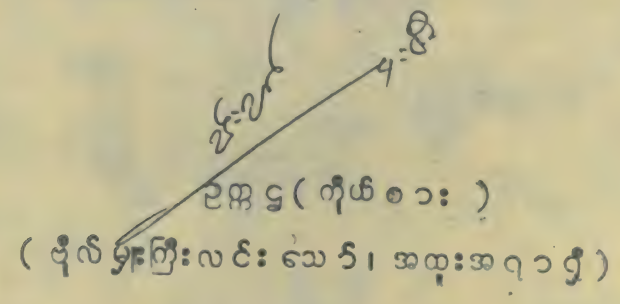 ဥက္ကဋ္ဌ ( ကိုယ်စား )
( ဗိုလ်မှူးကြီးလင်းသော်၊ အထူးအရာရှိ )